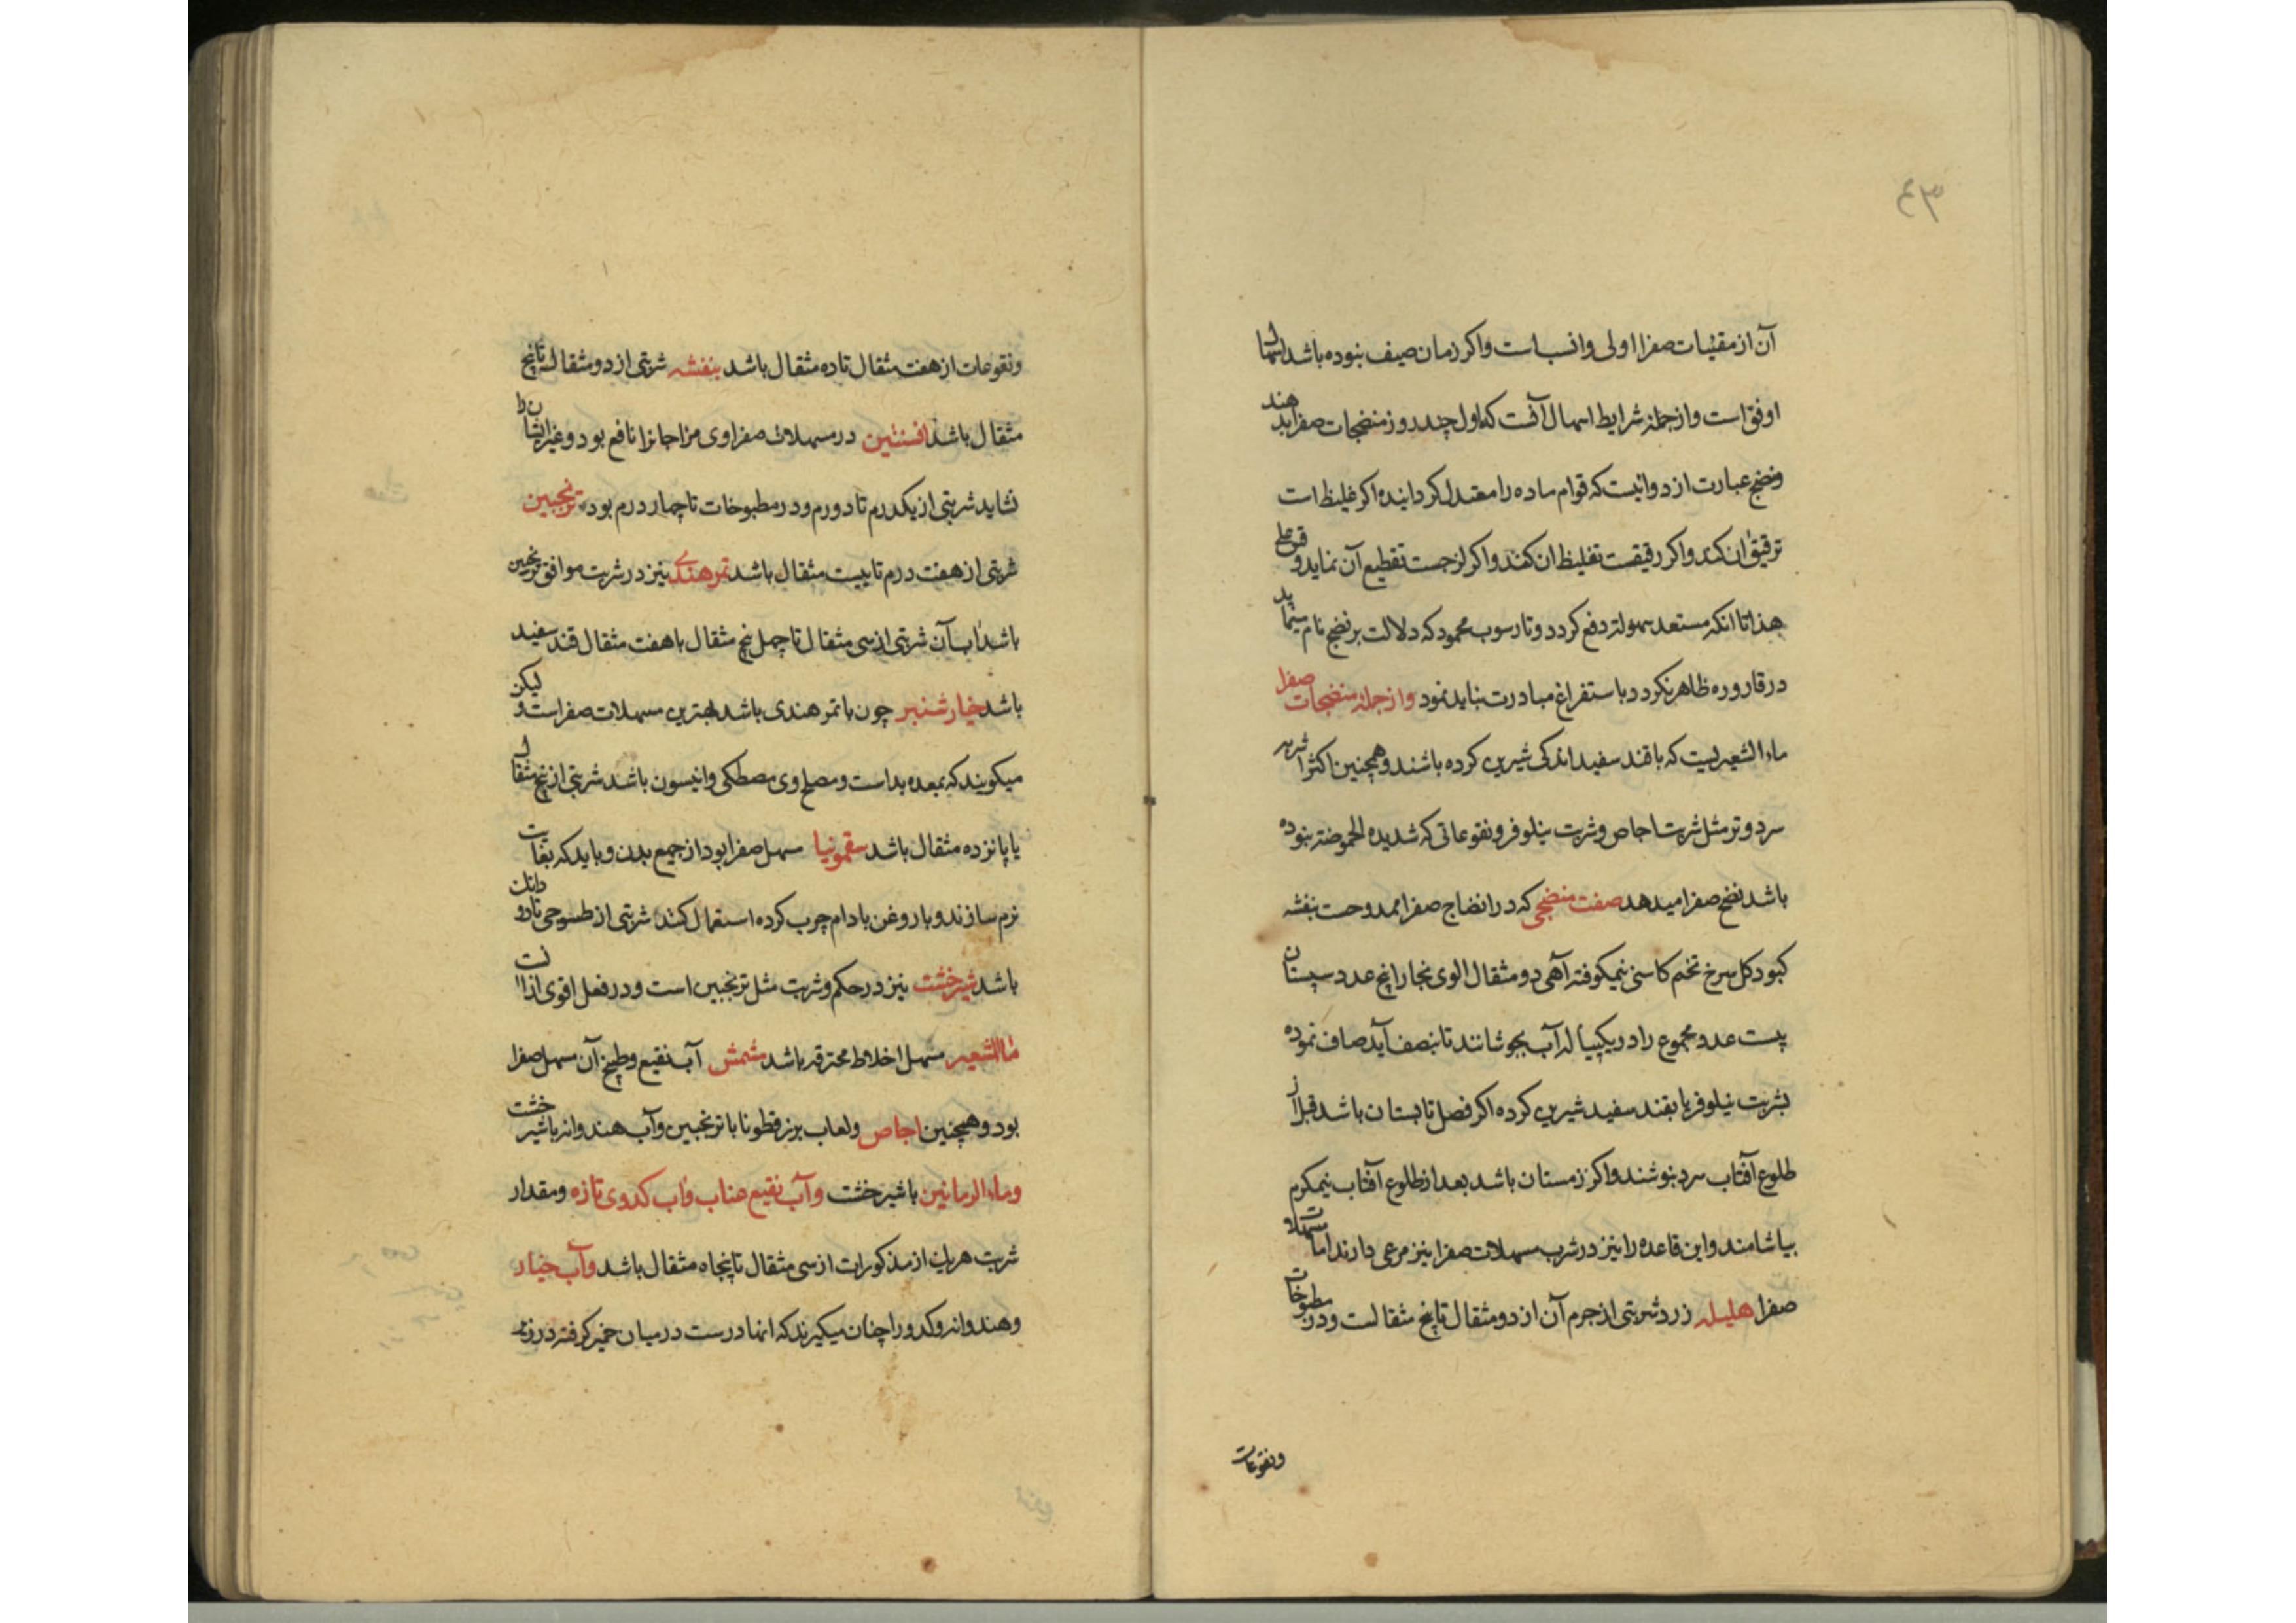 ۴۳
آن از مقیّات صفرا اولی وانسب است واکر زمان صیف نبوده باشد اسهال
اوفق است واز جمله شرایط اسهال آنست که اول چند روز منضجات صفرا بدهند
ومنضج عبارت از دوائیست که قوام ماده را معتدل کرداینده اکر غلیظ است
ترقیق ان کند واکر رقیقست تغلیظ ان کند واکر لزجست تقطیع آن نماید وقس علی
هذا تا انکه مستعد سهولة دفع کردد وتا رسوب محمود که دلالت بر نضج تام
در قاروره ظاهر نکردد باستفراغ مبادرت نباید نمود واز جمله منضجات صفرا
ماء الشعیر یست که باقند سفید اندکی شیرین کرده باشند وهمچنین اکثر اشربه
سرد وتر مثل شربت اجاص وشربت نیلوفر ونقوعاتی که شدیده الحموضة نبوده
باشد نضج صفرا میدهد صفت منضجی که در انضاج صفرا ممدوحست بنفشه
کبود کل سرخ تخم کاسنی نیمکوفته آهی دو مثقال الوی بخارا پنج عدد سپستان
پیست عدد مجموع را در یکپیاله آب بجوشانند تا بنصف آید صاف نموده
بشربت نیلوفر یا بقند سفید شیرین کرده اکر فصل تابستان باشد قبل از
طلوع آفتاب سرد بنوشند واکر زمستان باشد بعد از طلوع آفتاب نیمکرم
بیاشامند واین قاعده را نیز در شرب مسهلات صفرا نیز مرعی دارند اما مسهلات
صفرا هلیله زرد شربتی از جرم آن از دو مثقال تا پنج مثقالست ودر مطبوخات
ونقوعات
ونقوعات از هفت مثقال تا ده مثقال باشد بنفشه شربتی از دو مثقال تا پنج
مثقال باشد افسنتین در مسهلات صفراوی مزاجانرا نافع بود وغیر ایشان را
نشاید شربتی از یکدرم تا دو درم ودر مطبوخات تا چهار درم بود ترنجبین
شربتی از هفت درم تا بیست مثقال باشد تمر هندی نیز در شربت موافق ترنجبین
باشد اب آن شربتی از سی مثقال تا چهل پنج مثقال باهفت مثقال قند سفید
باشد خیارشنبر چون باتمر هندی باشد بهترین مسهلات صفراست ولیکن
میکویند که بمعده بد است ومصلح وی مصطکی وانیسون باشد شربتی از پنج مثقال
یا پانزده مثقال باشد سقمونیا مسهل صفرا بود از جمیع بدن وباید که بغایت
نرم سازند وباروغن بادام چرب کرده استعمال کنند شربتی از طسوجی تا دو دانک
باشد شیرخشت نیز در حکم وشربت مثل ترنجبین است ودر فعل اقوی از انست
ماالشعیر مسهل اخلاط محترقه باشد مشمش آب نقیع وطبیخ آن مسهل صفرا
بود وهمچنین اجاص ولعاب بزر قطونا باترنجبین وآب هندوانه باشیرخشت
وماء الرمانین باشیرخشت وآب نقیع عناب واب کدوی تازه ومقدار
شربت هریک از مذکورات از سی مثقال تا پنجاه مثقال باشد وآب خیار
وهندوانه وکدو را چنان میکیرند که انها درست درمیان خمیر کرفته در زیر